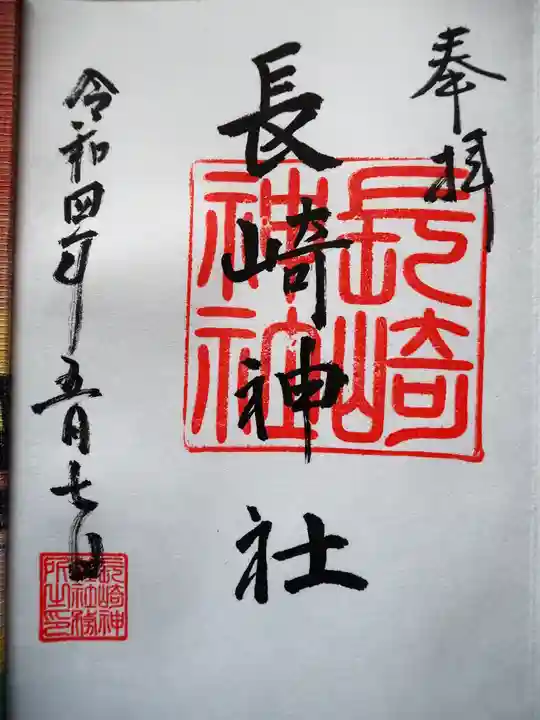 奉拝
長崎神社
長崎神社
令和四年五月七日
長崎神社社務所之印